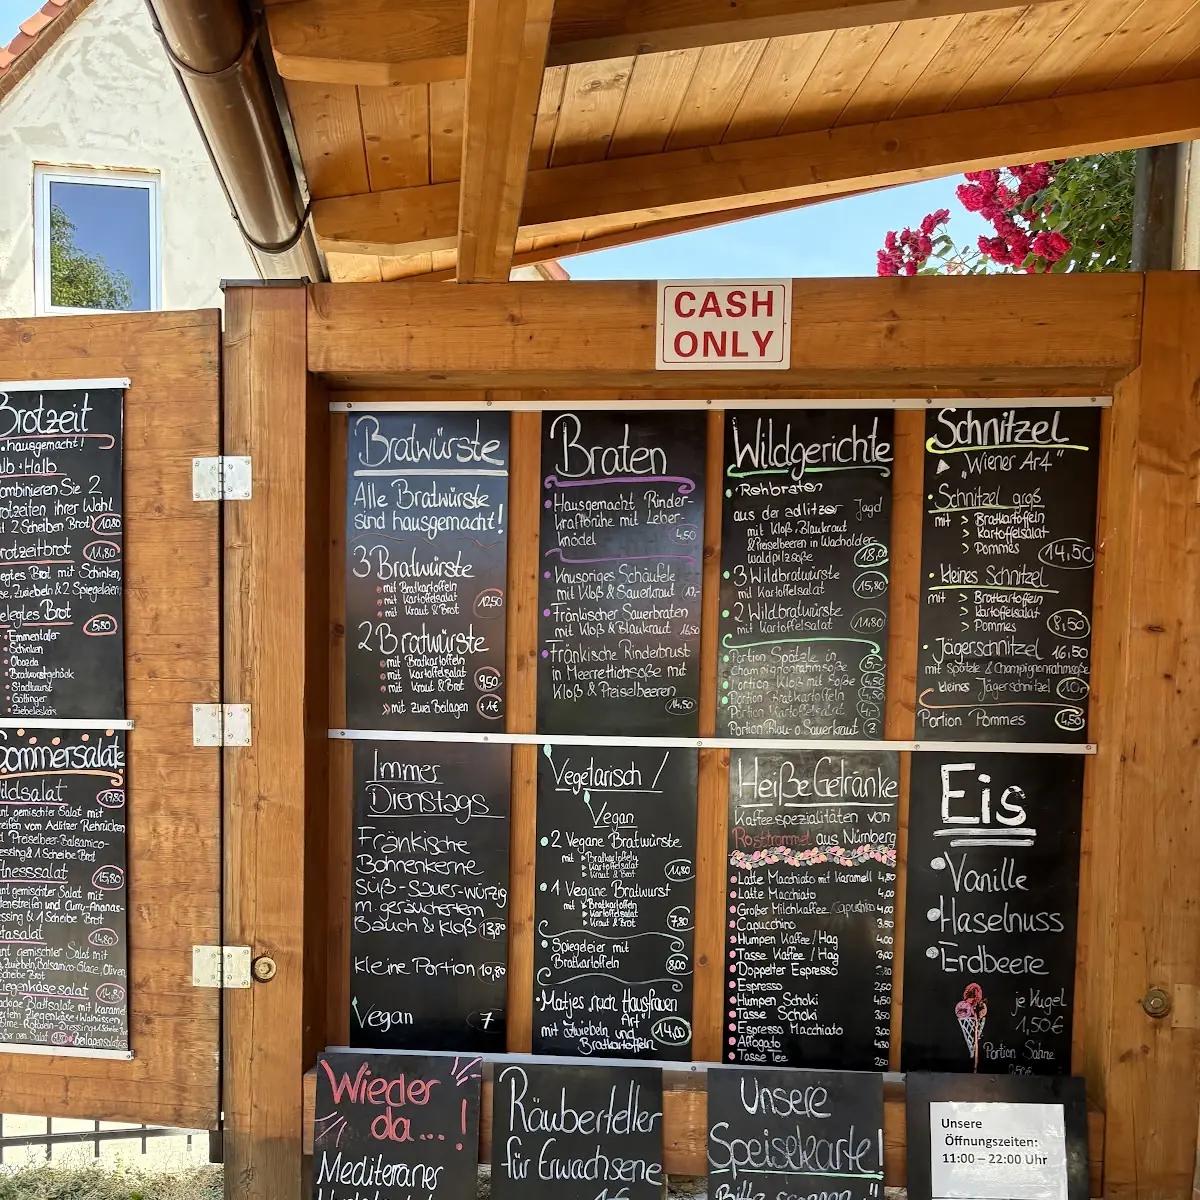 CASH
ONLY
Brotzeit
hausgemacht!
Halb
Kombinieren Sie 2
Brotzeiten ihrer Wahl
2 Scheiben Brot) 10,80
Brotzeitbrot 11,80
Brot mit Schinken,
Zwiebeln & 2 Spiegeleiern
belegtes Brot 5,80
Emmentaler
Schinken
Obazda
Bratwurstgehäck
Stadtwurst
Göttinger
Ziebeleskäs
Sommersalate
Wildsalat 17,80
gemischter Salat mit
Streifen vom Adlitzer Rehrücken
Preiselbeer-Balsamico-
Dressing & 1 Scheibe Brot
Fitnesssalat 15,80
gemischter Salat mit
Putenstreifen und Curry-Ananas-
Dressing & 1 Scheibe Brot
Fetasalat 14,80
gemischter Salat mit
Zwiebeln, Balsamico-Glace, Oliven
Scheibe Brot
Ziegenkäsesalat 14,80
Blattsalate mit Karamel
Ziegenkäse + Walnüssen,
Bratwürste
Alle Bratwürste
sind hausgemacht!
3 Bratwürste
mit Bratkartoffeln
mit Kartoffelsalat
mit Kraut & Brot
12,50
2 Bratwürste
mit Bratkartoffeln
mit Kartoffelsalat
mit Kraut & Brot
9,50
» mit zwei Beilagen +1€
Braten
Hausgemacht Rinder-
kraftbrühe mit Leber-
knödel 4,50
Knuspriges Schäufele
mit Kloß & Sauerkraut
Fränkischer Sauerbraten
mit Kloß & Blaukraut 16,50
Fränkische Rinderbrust
in Meerrettichsoße mit
Kloß & Preiselbeeren
14,50
Wildgerichte
Rehbraten
aus der adlitzer Jagd
mit Kloß, Blaukraut
& Preiselbeeren in Wacholder-
waldpilzsoße 18,00
3 Wildbratwürste
mit Kartoffelsalat 15,80
2 Wildbratwürste
mit Kartoffelsalat 11,80
Portion Spätzle in
Champignonrahmsoße 5,-
Portion Kloß mit Soße 4,50
Portion Bratkartoffeln 4,50
Portion Kartoffelsalat 4,-
Portion Blau- o. Sauerkraut 3,
Schnitzel
"Wiener Art"
Schnitzel groß
mit > Bratkartoffeln
> Kartoffelsalat
> Pommes
14,50
kleines Schnitzel
mit > Bratkartoffeln
> Kartoffelsalat
> Pommes
8,50
Jägerschnitzel 16,50
mit Spätzle & Champignonrahmsoße
kleines Jägerschnitzel 10,-
Portion Pommes 4,50
Immer
Dienstags
Fränkische
Bohnenkerne
süß-sauer-würzig
m. geräuchertem
Bauch & Kloß 13,80
kleine Portion 10,80
Vegan 7,-
Vegetarisch /
Vegan
2 Vegane Bratwürste
mit Bratkartoffeln
Kartoffelsalat
Kraut & Brot
11,80
1 Vegane Bratwurst
mit Bratkartoffeln
Kartoffelsalat
Kraut & Brot
7,80
Spiegeleier mit
Bratkartoffeln 8,00
Matjes nach Hausfrauen
Art
mit Zwiebeln und
Bratkartoffeln
14,00
Heiße Getränke
Kaffeespezialitäten von
Rösttrommel aus Nürnberg
Latte Macchiato mit Karamell 4,80
Latte Macchiato 4,00
Großer Milchkaffee, Capuchino 4,00
Capucchino 3,50
Humpen Kaffee / Hag 4,00
Tasse Kaffee / Hag 3,00
Doppelter Espresso 3,80
Espresso 2,50
Humpen Schoki 4,50
Tasse Schoki 3,50
Espresso Macchiato 3,00
Affogato 4,30
Tasse Tee 2,50
Eis
Vanille
Haselnuss
Erdbeere
je Kugel
1,50€
Portion Sahne
Wieder
da...!
Mediteraner
Räuberteller
für Erwachsene
Unsere
Speisekarte!
Bitte
Unsere
Öffnungszeiten:
11:00 – 22:00 Uhr